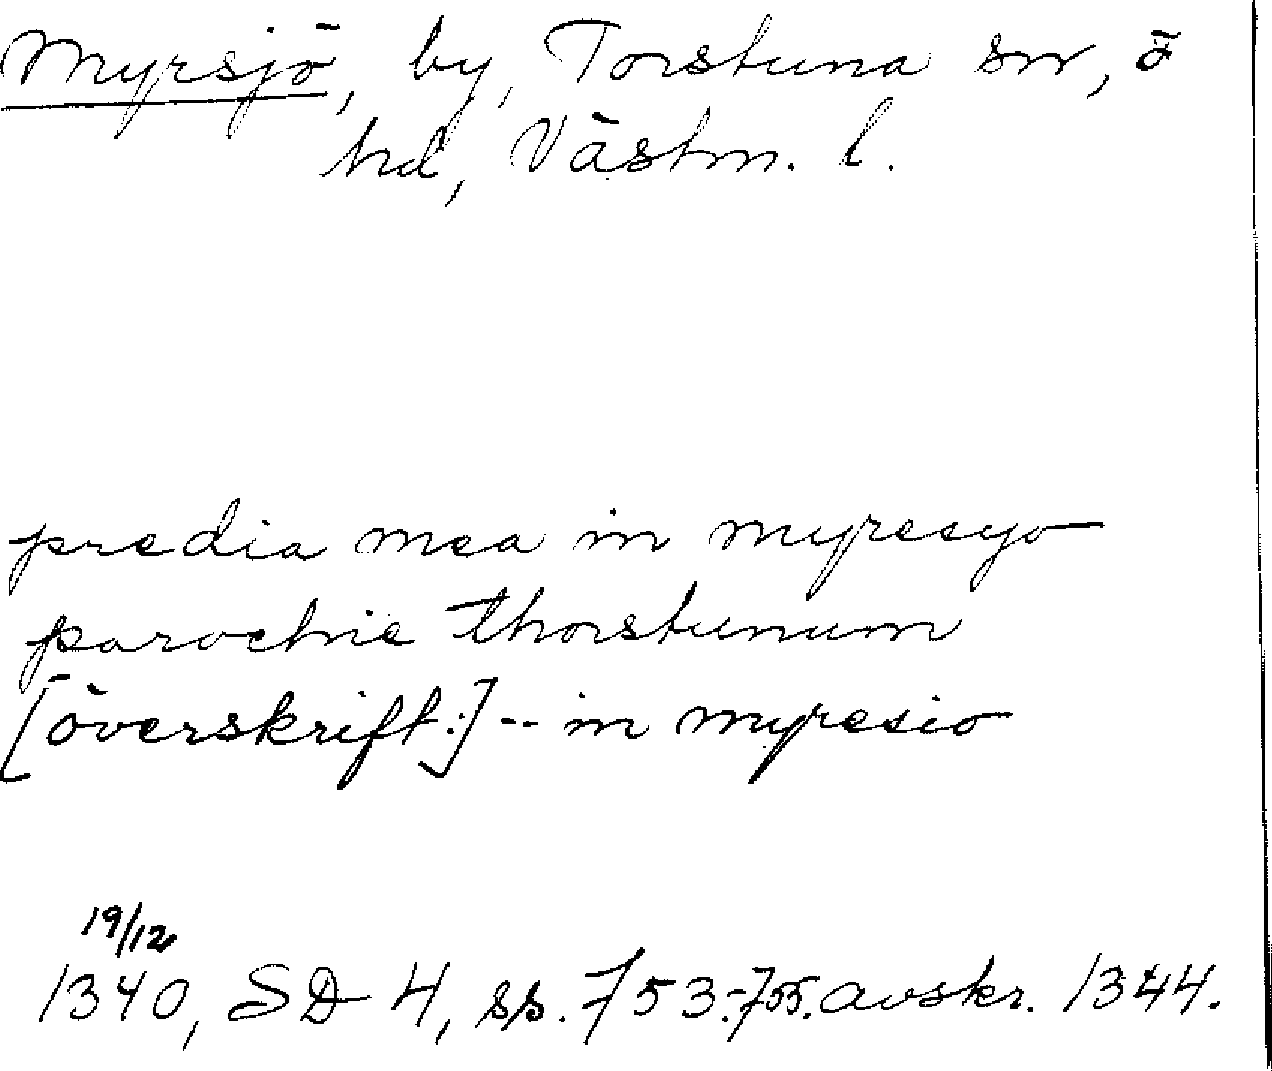 Myrsjö, by, Torstuna sn, ö
hd, Västm. l.
predia mea in myresyo
parochie thorstunum
[överskrift:] -- in myresio
19/12
1340, SD 4, ss. 753-755. avskr. 1344.